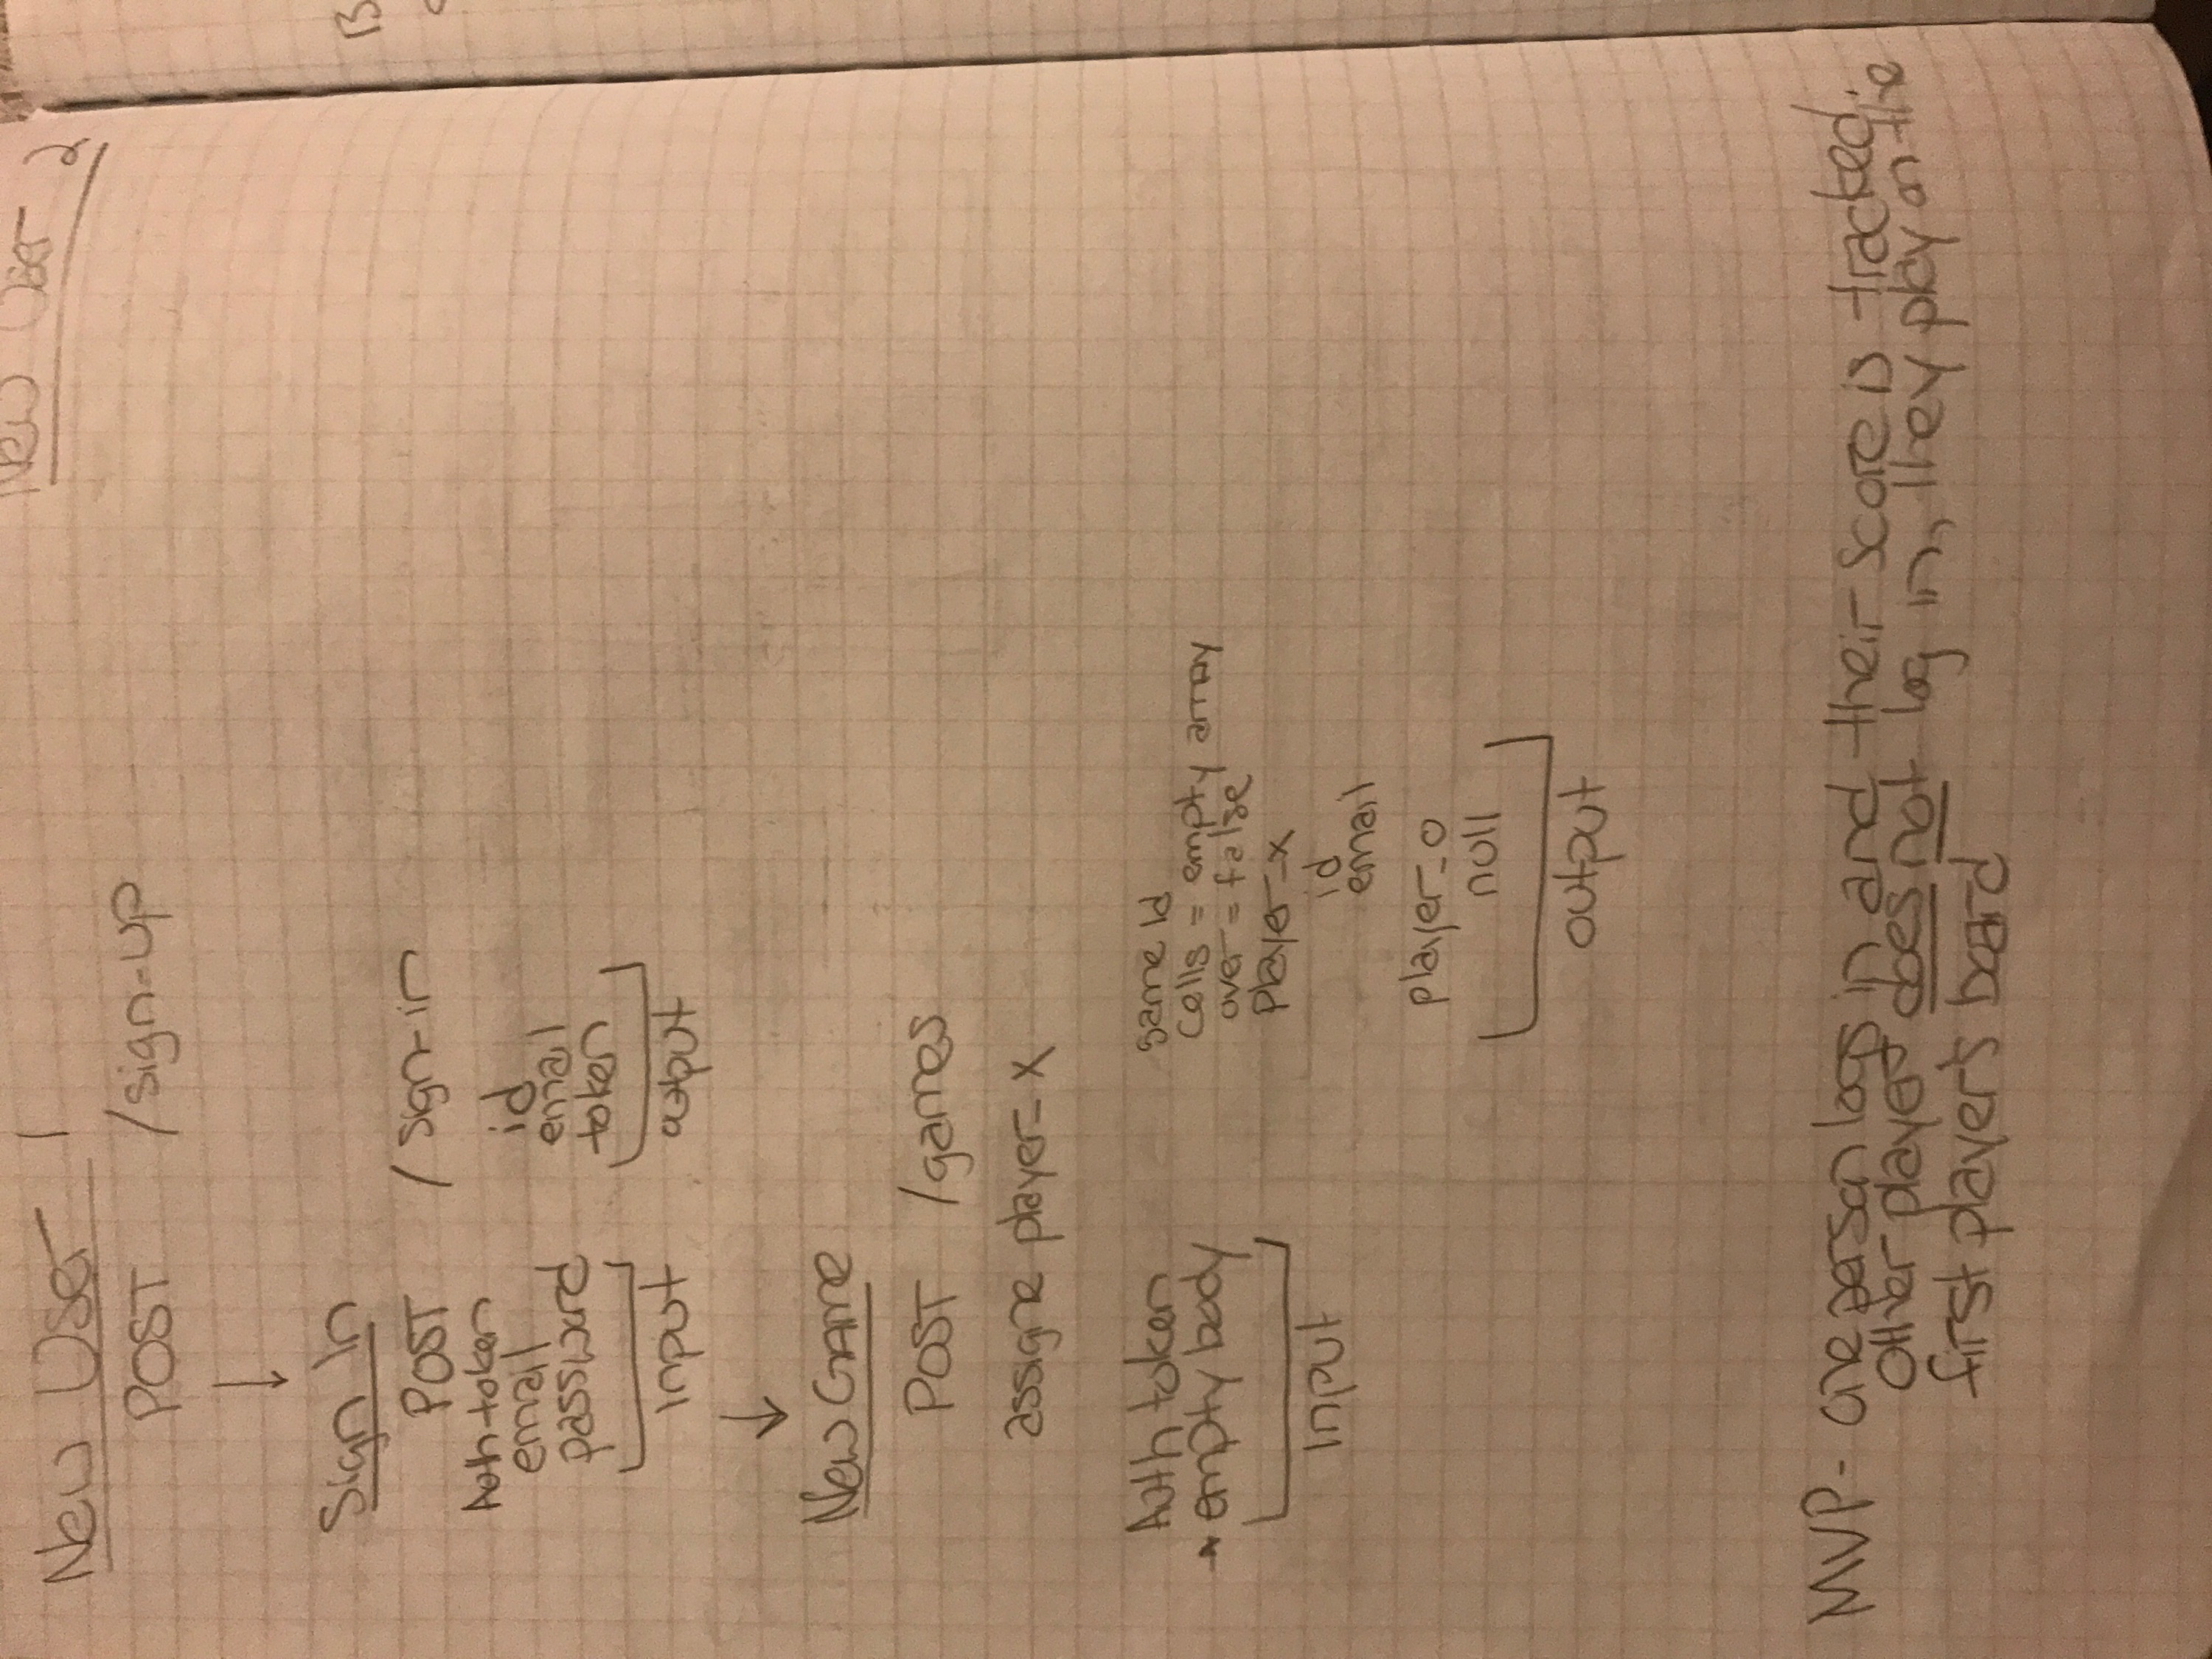 New User 1
New User 2
POST /sign-up
↓
Sign In
POST /sign-in
Auth token
email
password
input
id
email
token
output
↓
New Game
POST /games
assigne player_x
Auth token
* empty body
Input
game id
cells = empty array
over = false
player_x
id
email
player_o
null
output
MVP- one person logs in and their score is tracked.
Other player does not log in, they play on the
first player's board
B